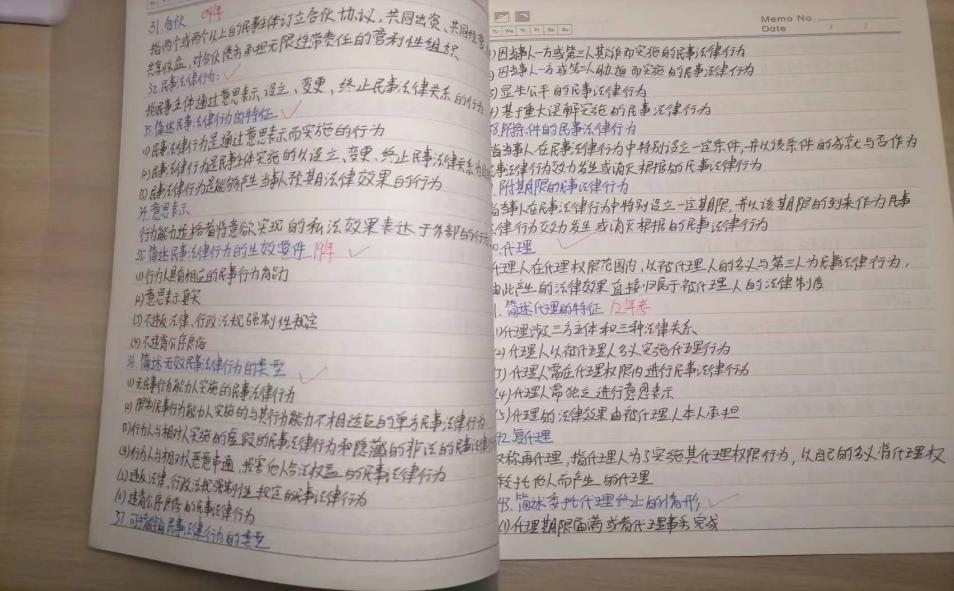 31.合伙 04年
指两个或两个以上的民事主体订立合伙协议，共同出资、共同经营
共享收益，对合伙债务承担无限连带责任的营利性组织
32.民事法律行为：
指民事主体通过意思表示设立、变更、终止民事法律关系的行为
33.简述民事法律行为的特征
(1)民事法律行为是通过意思表示而实施的行为
(2)民事法律行为是民事主体实施的以设立、变更、终止民事法律关系为目
(3)民事法律行为是能够产生当事人预期法律效果的行为
34.意思表示
行为能力适格者将意欲实现的私法效果表达于外部的行为
35.简述民事法律行为的生效要件 19年
(1)行为人具有相应的民事行为能力
(2)意思表示真实
(3)不违反法律、行政法规强制性规定
(4)不违背公序良俗
36.简述无效民事法律行为的类型
(1)无民事行为能力人实施的民事法律行为
(2)限制民事行为能力人实施的与其行为能力不相适应的单方民事法律行为
(3)行为人与相对人实施的虚假的民事法律行为和隐藏的非法的民事法律
(4)行为人与相对人恶意串通，损害他人合法权益的民事法律行为
(5)违反法律、行政法规强制性规定的民事法律行为
(6)违背公序良俗的民事法律行为
37.可撤销民事法律行为的类型
Memo No.
Tu We Th Fr Sa Su
Date / /
)因当事人一方或第三人欺诈而实施的民事法律行为
)因当事人一方或第三人胁迫而实施的民事法律行为
)显失公平的民事法律行为
)基于重大误解实施的民事法律行为
8.附条件的民事法律行为
当事人在民事法律行为中特别设立一定条件，并以该条件的成就与否作为
民事法律行为效力发生或消灭根据的民事法律行为
.附期限的民事法律行为
当事人在民事法律行为中特别设立一定期限，并以该期限的到来作为民事
法律行为效力发生或消灭根据的民事法律行为
0.代理
代理人在代理权限范围内，以被代理人的名义与第三人为民事法律行为，
由此产生的法律效果直接归属于被代理人的法律制度
1.简述代理的特征 12年考
(1)代理涉及三方主体和三种法律关系
(2)代理人以被代理人名义实施代理行为
(3)代理人需在代理权限内进行民事法律行为
(4)代理人需独立进行意思表示
(5)代理的法律效果由被代理人本人承担
42.复代理
又称再代理，指代理人为了实施其代理权限行为，以自己的名义将代理权
转托他人而产生的代理
43.简述委托代理终止的情形
(1)代理期限届满或者代理事务完成